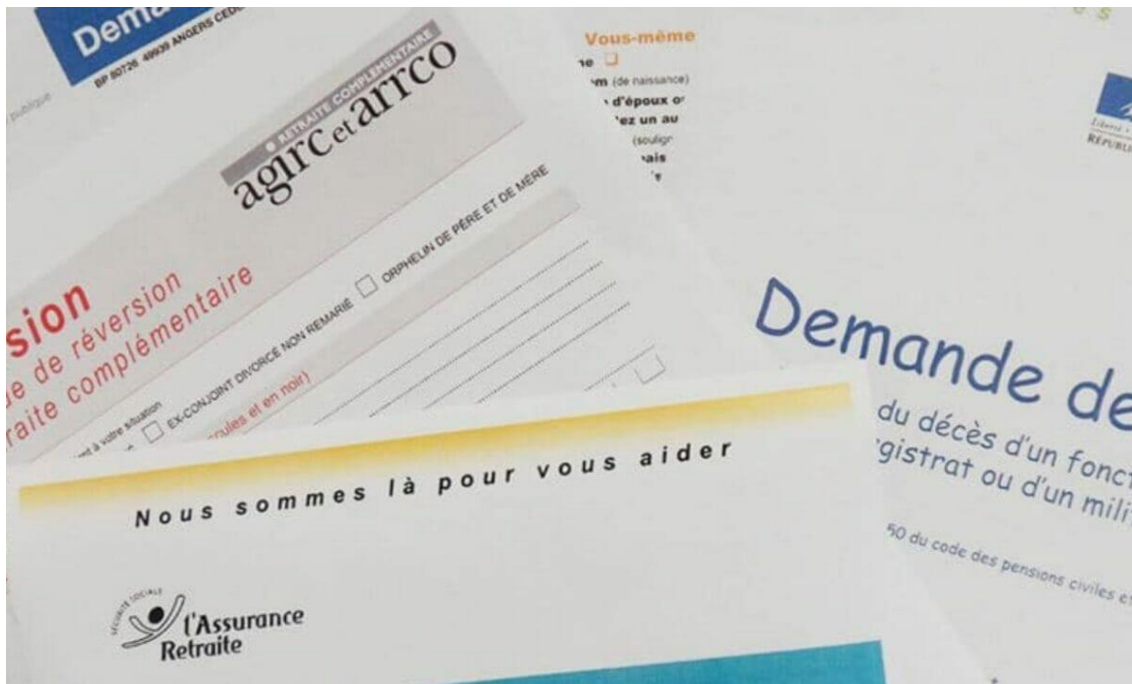 BP 80726 49939 ANGERS
publique
RETRAITE COMPLÉMENTAIRE
agirc et arrco
sion
de réversion
raite complémentaire
à votre situation
EX-CONJOINT DIVORCÉ NON REMARIÉ
ORPHELIN DE PÈRE ET DE MÈRE
et en noir)
Vous-même
(de naissance)
d'époux
un au
Demande de
du décès d'un fonc
gistrat ou d'un mili
50 du code des pensions civiles et
Nous sommes là pour vous aider
SÉCURITÉ SOCIALE
l'Assurance
Retraite